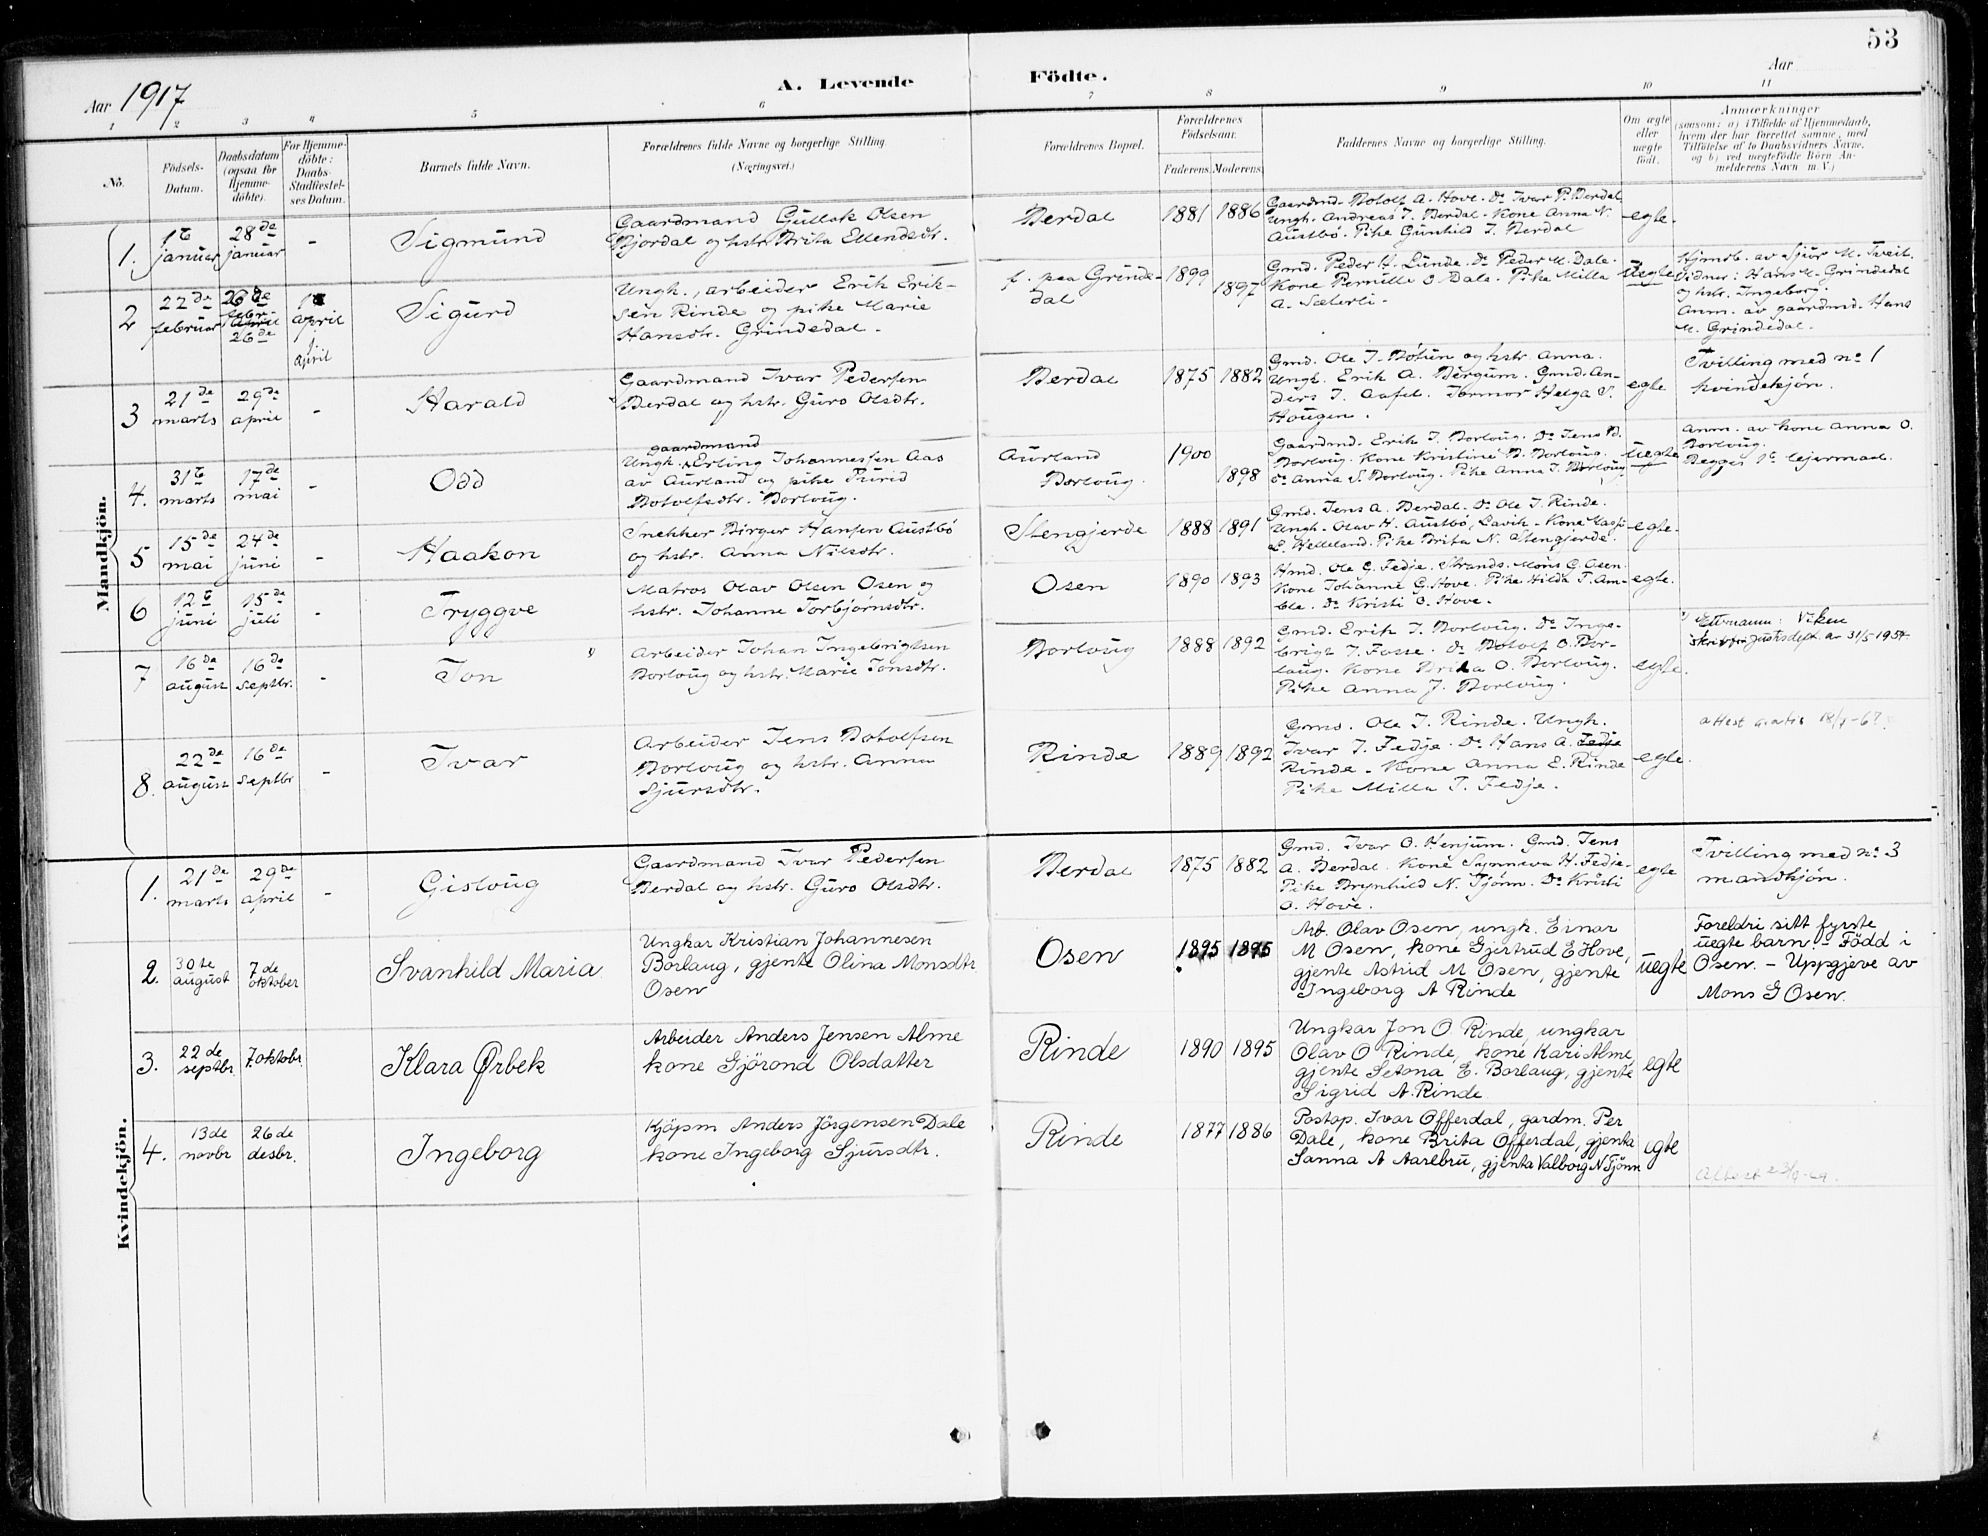 53
Aar 1917
A. Levende Födte.
Aar
1 2 3 4 5 6 7 8 9 10 11
No.
Födsels-
Datum.
Daabsdatum
(ogsaa for
Hjemme-
döbte).
For Hjemme-
döbte:
Daabs-
Stadfæstel-
ses Datum.
Barnets fulde Navn.
Forældrenes fulde Navne og borgerlige Stilling
(Næringsvei.)
Forældrenes Bopæl.
Forældrenes
Födselsaar.
Faderens. Moderens.
Faddernes Navne og borgerlige Stilling.
Om ægte
eller
uægte
födt.
Anmærkninger
(saasom: a) i Tilfælde af Hjemmedaab,
hvem der har forrettet samme, med
Tilföielse af to Daabsvidners Navne,
og b) ved uægtefödte Börn An-
melderens Navn m. V.)
Mandkjön.
1.
1 te
januar
28 de
januar
-
Sigmund
Gaardmand Gullak Olsen
Bjordal og hstr. Brita Ellendsdtr.
Berdal
1881 1886
Gaardmd. Botolf A. Hove. Do Ivar P. Berdal
Ungk. Andreas I. Berdal. Kone Anna N.
Austbö. Pike Gunhild I. Berdal
egte.
2
22 de
februar
26 de
febr.
april
26 de
1
april
1
april
Sigurd
Ungk., arbeider Erik Erik-
sen Rinde og pike Marie
Hansdtr. Grindedal.
f. paa Grinde-
dal
1899
1897
Gmd. Peder H. Lunde. Do Peder M. Dale.
Kone Pernille O. Dale. Pike Milla
A. Sæterli.
Uegte
Hjmdb. av Sjur M. Tveit.
Vidner: Hans M. Grindedal
og hstr. Ingeborg.
Anm. av gaardmd. Hans
M. Grindedal.
3
21 de
marts
29 de
april
-
Harald
Gaardmand Ivar Pedersen
Berdal og hstr. Guro Olsdtr.
Berdal
1875 1882
Gmd. Ole I. Bötun og hstr. Anna.
Ungk. Erik A. Bergum. Gmd. An-
ders I. Aafet. Jormor Helga S.
Haugen.
egte
Tvilling med no 1
kvindekjön.
4.
31 te
marts
17 de
mai
-
Odd
gaardmand
Ungk. Erling Johannessen Aas
av Aurland og pike Turid
Botolfsdtr. Borlaug.
Aurland
Borlaug.
1900
1898
Gaardmd. Erik I. Borlaug. Do Jens B.
Borlaug. Kone Kristine B. Borlaug.
Do Anna S. Borlaug. Pike Anna I. Borlaug
Uegte
Anm. av kone Anna O.
Borlaug.
Begges 1ste lejermaal.
5
15 de
mai
24 de
juni
-
Haakon
Snekker Birger Hansen Austbö
og hstr. Anna Nilsdtr.
Stengjerde
1888 1891
Gmd. Jens A. Berdal. Do Ole I. Rinde.
Ungk. Olav H. Austbö, Lavik. Kone
E. Helleland. Pike Brita N. Stengjerde.
egte.
6
12 te
juni
15 de
juli
-
Tryggve
Matros Olav Olsen Osen og
hstr. Johanne Torbjörnsdtr.
Osen
1890 1893
Hmd. Ole G. Fedje. Strands. Mons G. Osen.
Kone Johanne G. Hove. Pike Hilda T. Am-
ble. Do Kristi O. Hove.
egte.
7
16 de
august
16 de
septbr.
-
Jon
Arbeider Johan Ingebrigtsen
Borlaug og hstr. Marie Jonsdtr.
Borlaug
1888 1892
Gmd. Erik I. Borlaug. Do Inge-
brigt I. Fosse. Do Botolf O. Bor-
laug. Kone Brita O. Borlaug.
Pike Anna J. Borlaug.
egte.
Etternamn: Viken
skriv fra justisdept. av 31/5 1954
8.
22 de
august
16 de
septbr
-
Ivar
Arbeider Jens Botolfsen
Borlaug og hstr. Anna
Sjursdtr.
Rinde
1889 1892
Gmd. Ole I. Rinde. Ungk.
Ivar I. Fedje. Do Hans A. Fedje
Rinde. Kone Anna E. Rinde
Pike Milla I. Fedje.
egte.
attest gratis 18/7-67
Kvindekjön.
1.
21 de
marts
29 de
april
-
Gislaug
Gaardmand Ivar Pedersen
Berdal og hstr. Guro Olsdtr.
Berdal
1875 1882
Gmd. Ivar O. Henjum. Gmd. Jens
A. Berdal. Kone Synneva H. Fedje.
Pike Brynhild N. Tjönn. Do Kristi
O. Hove.
egte
Tvilling med no 3
mandkjön.
2.
30 te
august
7 de
oktober
Svanhild Maria
Ungkar Kristian Johannesen
Borlaug, gjente Olina Monsdtr
Osen
Osen
1895 1895
Arb. Olav Osen, ungk. Einar
M Osen, kone Gjertrud E Hove,
gjente Astrid M Osen, gjente
Ingeborg A Rinde
uegte
Foreldri sitt fyrste
uegte barn. - Född i
Osen. - Uppgjeve av
Mons G Osen.
3.
22 de
septbr.
7. oktobr.
Klara Ørbek
Arbeider Anders Jensen Alme
kone Gjörond Olsdatter
Rinde
1890 1895
Ungkar Jon O. Rinde, ungkar
Olav O Rinde, kone Kari Alme,
gjente Setona E. Borlaug, gjente
Sigrid A. Rinde
egte
4.
13 de
novbr
26 de
desbr.
Ingeborg
Kjöpm Anders Jörgensen Dale
kone Ingeborg Sjursdtr.
Rinde
1877 1886
Postop. Ivar Offerdal, gardm. Per
Dale, kone Brita Offerdal, gjenta
Sanna A Aarebru, gjenta Valborg N Tjönn
egte